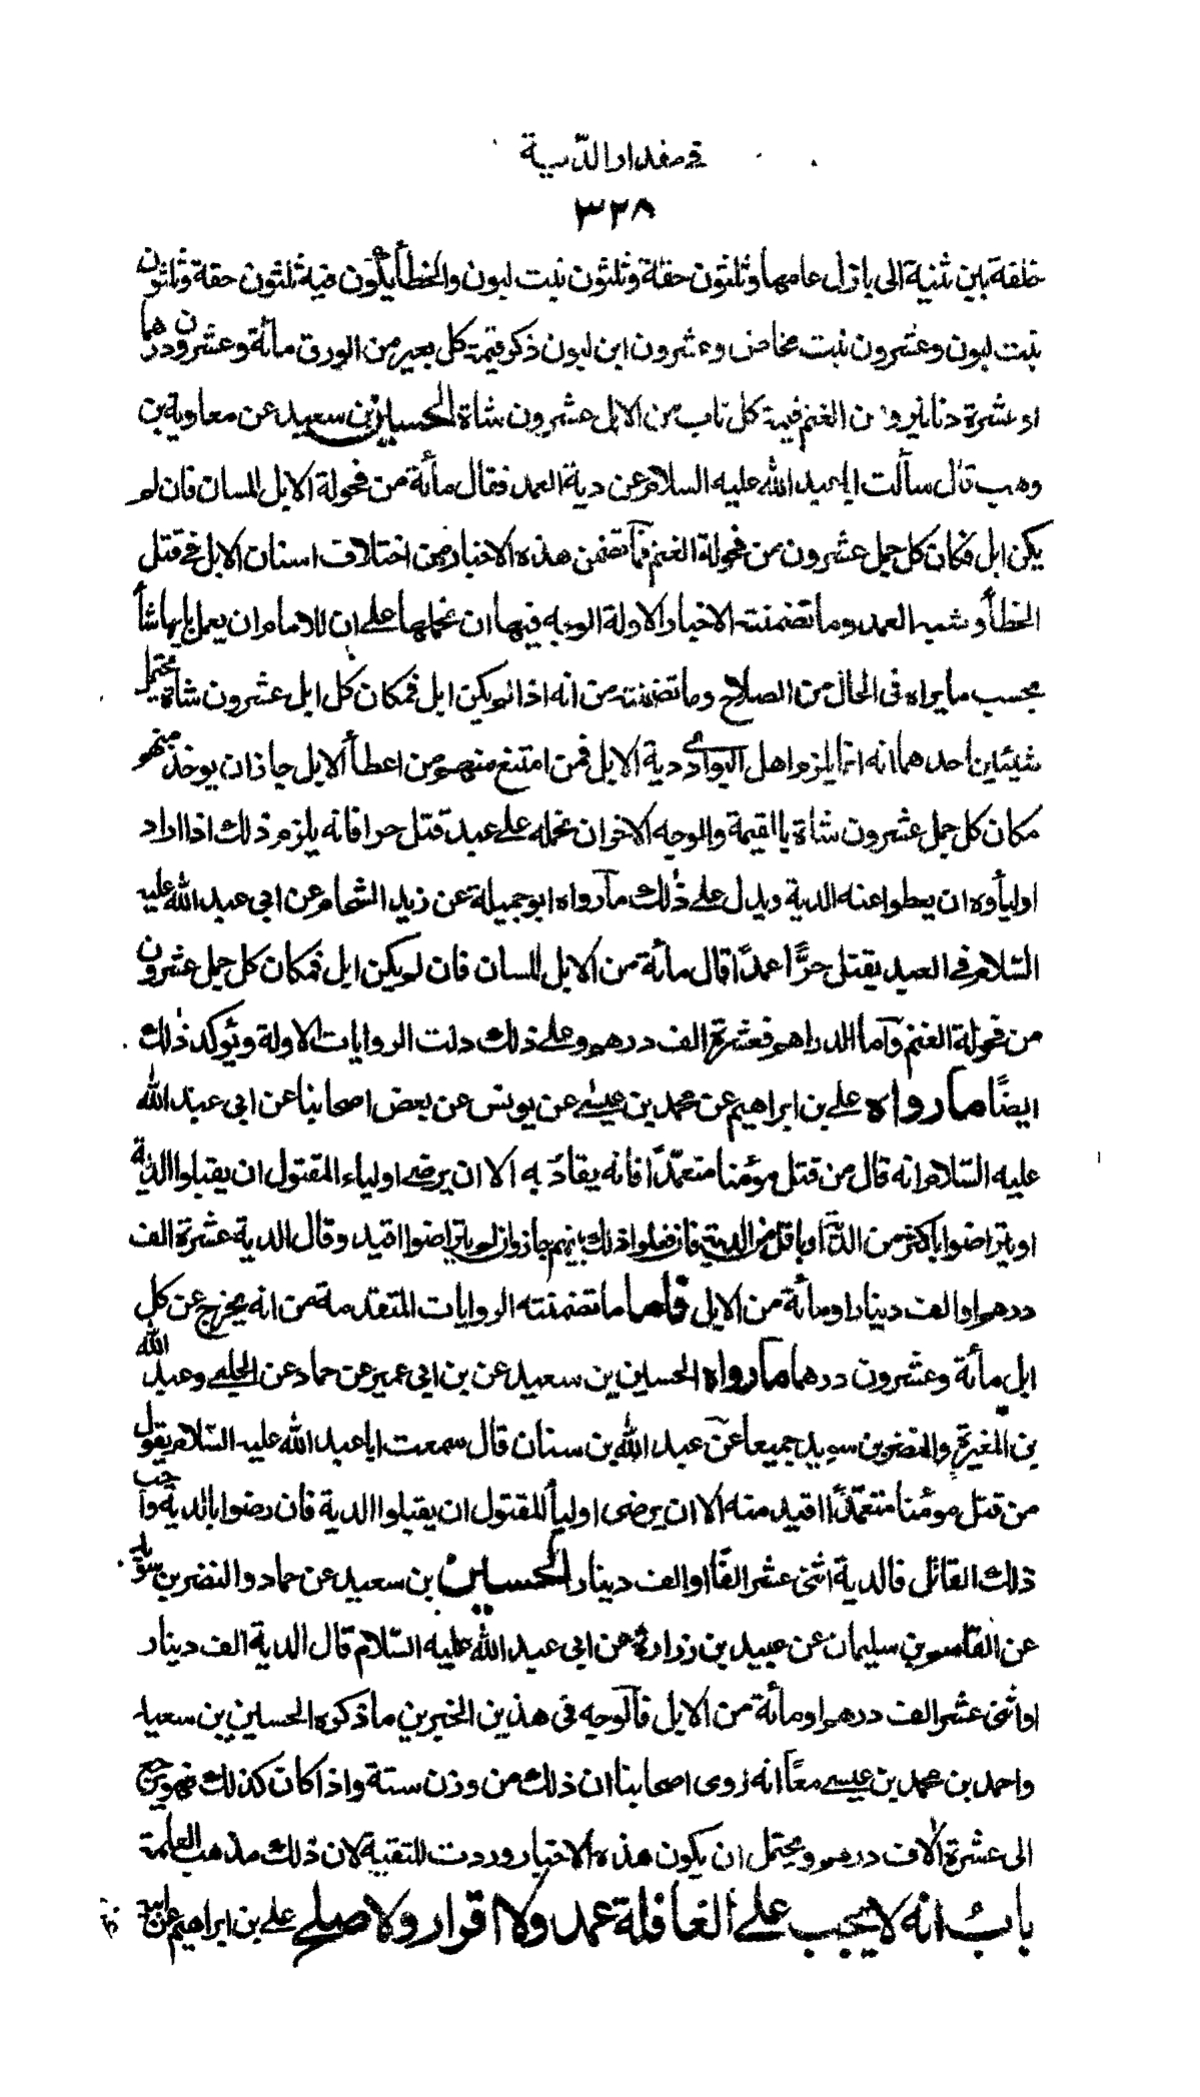 في مقدار الدية
٣٢٨
خلفة بين ثنية الى بازل عامها وثلثون حقة وثلثون بنت لبون والخطأ يكون فيه ثلثون حقة وثلثون
بنت لبون وعشرون بنت مخاض وعشرون ابن لبون ذكر قيمة كل بعير من الورق مائة وعشرون درهما
او عشرة دنانير ومن الغنم قيمة كل ناب من الابل عشرون شاة الحسين بن سعيد عن معاوية بن
وهب قال سألت ابا عبد الله عليه السلام عن دية العمد فقال مائة من فحولة الابل المسان فان لم
يكن ابل فكان كل جمل عشرون من فحولة الغنم فما تضمن هذه الاخبار من اختلاف اسنان الابل في قتل
الخطأ وشبه العمد وما تضمنته الاخبار الاولة الوجه فيها ان نحملها على ان للامام ان يعمل بايها شأ
بحسب ما يراه في الحال من الصلاح وما تضمنته من انه اذا لم يكن ابل فمكان كل ابل عشرون شاة يحتمل
شيئين احدهما انه انما يلزم اهل البوادي دية الابل فمن امتنع منهم من اعطأ الابل جاز ان يوخذ منهم
مكان كل جمل عشرون شاة بالقيمة والوجه الاخر ان نحمله على عبد قتل حرا فانه يلزم ذلك اذا اراد
اولياؤه ان يعطوا عنه الدية ويدل على ذلك ما رواه ابو جميلة عن زيد الشحام عن ابي عبد الله عليه
السلام في العبد يقتل حرًّا عمدًا قال مائة من الابل المسان فان لم يكن ابل فمكان كل جمل عشرون
من فحولة الغنم وأما الدراهم فعشرة الف درهم وعلى ذلك دلت الروايات الاولة ويؤكد ذلك
ايضًا ما رواه علي بن ابراهيم عن محمد بن عيسى عن يونس عن بعض اصحابنا عن ابي عبد الله
عليه السّلام انه قال من قتل مؤمنا متعمّدًا فانه يقاد به الا ان يرضى اولياء المقتول ان يقبلوا الدية
او يتراضوا باكثر من الدّية او باقل من الدية فان فعلوا ذلك بينهم جاز وان لم يتراضوا اقيد وقال الدية عشرة الف
درهم او الف دينار او مائة من الابل فاما ما تضمنته الروايات المتقدمة من انه يخرج عن كل
ابل مائة وعشرون درهما ما رواه الحسين بن سعيد عن بن ابي عمير عن حماد عن الحلبي وعبد الله
بن المغيرة والنضر بن سويد جميعا عن عبد الله بن سنان قال سمعت ابا عبد الله عليه السّلام يقول
من قتل مومنا متعمّدًا اقيد منه الا ان يرضى اوليأ المقتول ان يقبلوا الدية فان رضوا بالدية واحب
ذلك القاتل فالدية اثنى عشر الفًا او الف دينار الحسين بن سعيد عن حماد والنضر بن سويد
عن القاسم بن سليمان عن عبيد بن زرارة عن ابي عبد الله عليه السّلام قال الدية الف دينار
او اثنى عشر الف درهم او مائة من الابل فالوجه في هذين الخبرين ما ذكره الحسين بن سعيد
واحمد بن محمد بن عيسى معًا انه روى اصحابنا ان ذلك من وزن ستة واذا كان كذلك فهو يرجع
الى عشرة الاف درهم ويحتمل ان يكون هذه الاخبار وردت للتقية لان ذلك مذهب العامة
بابُ انه لا يجب على العاقلة عمد ولا اقرار ولا صلح علي بن ابراهيم عن ابيه